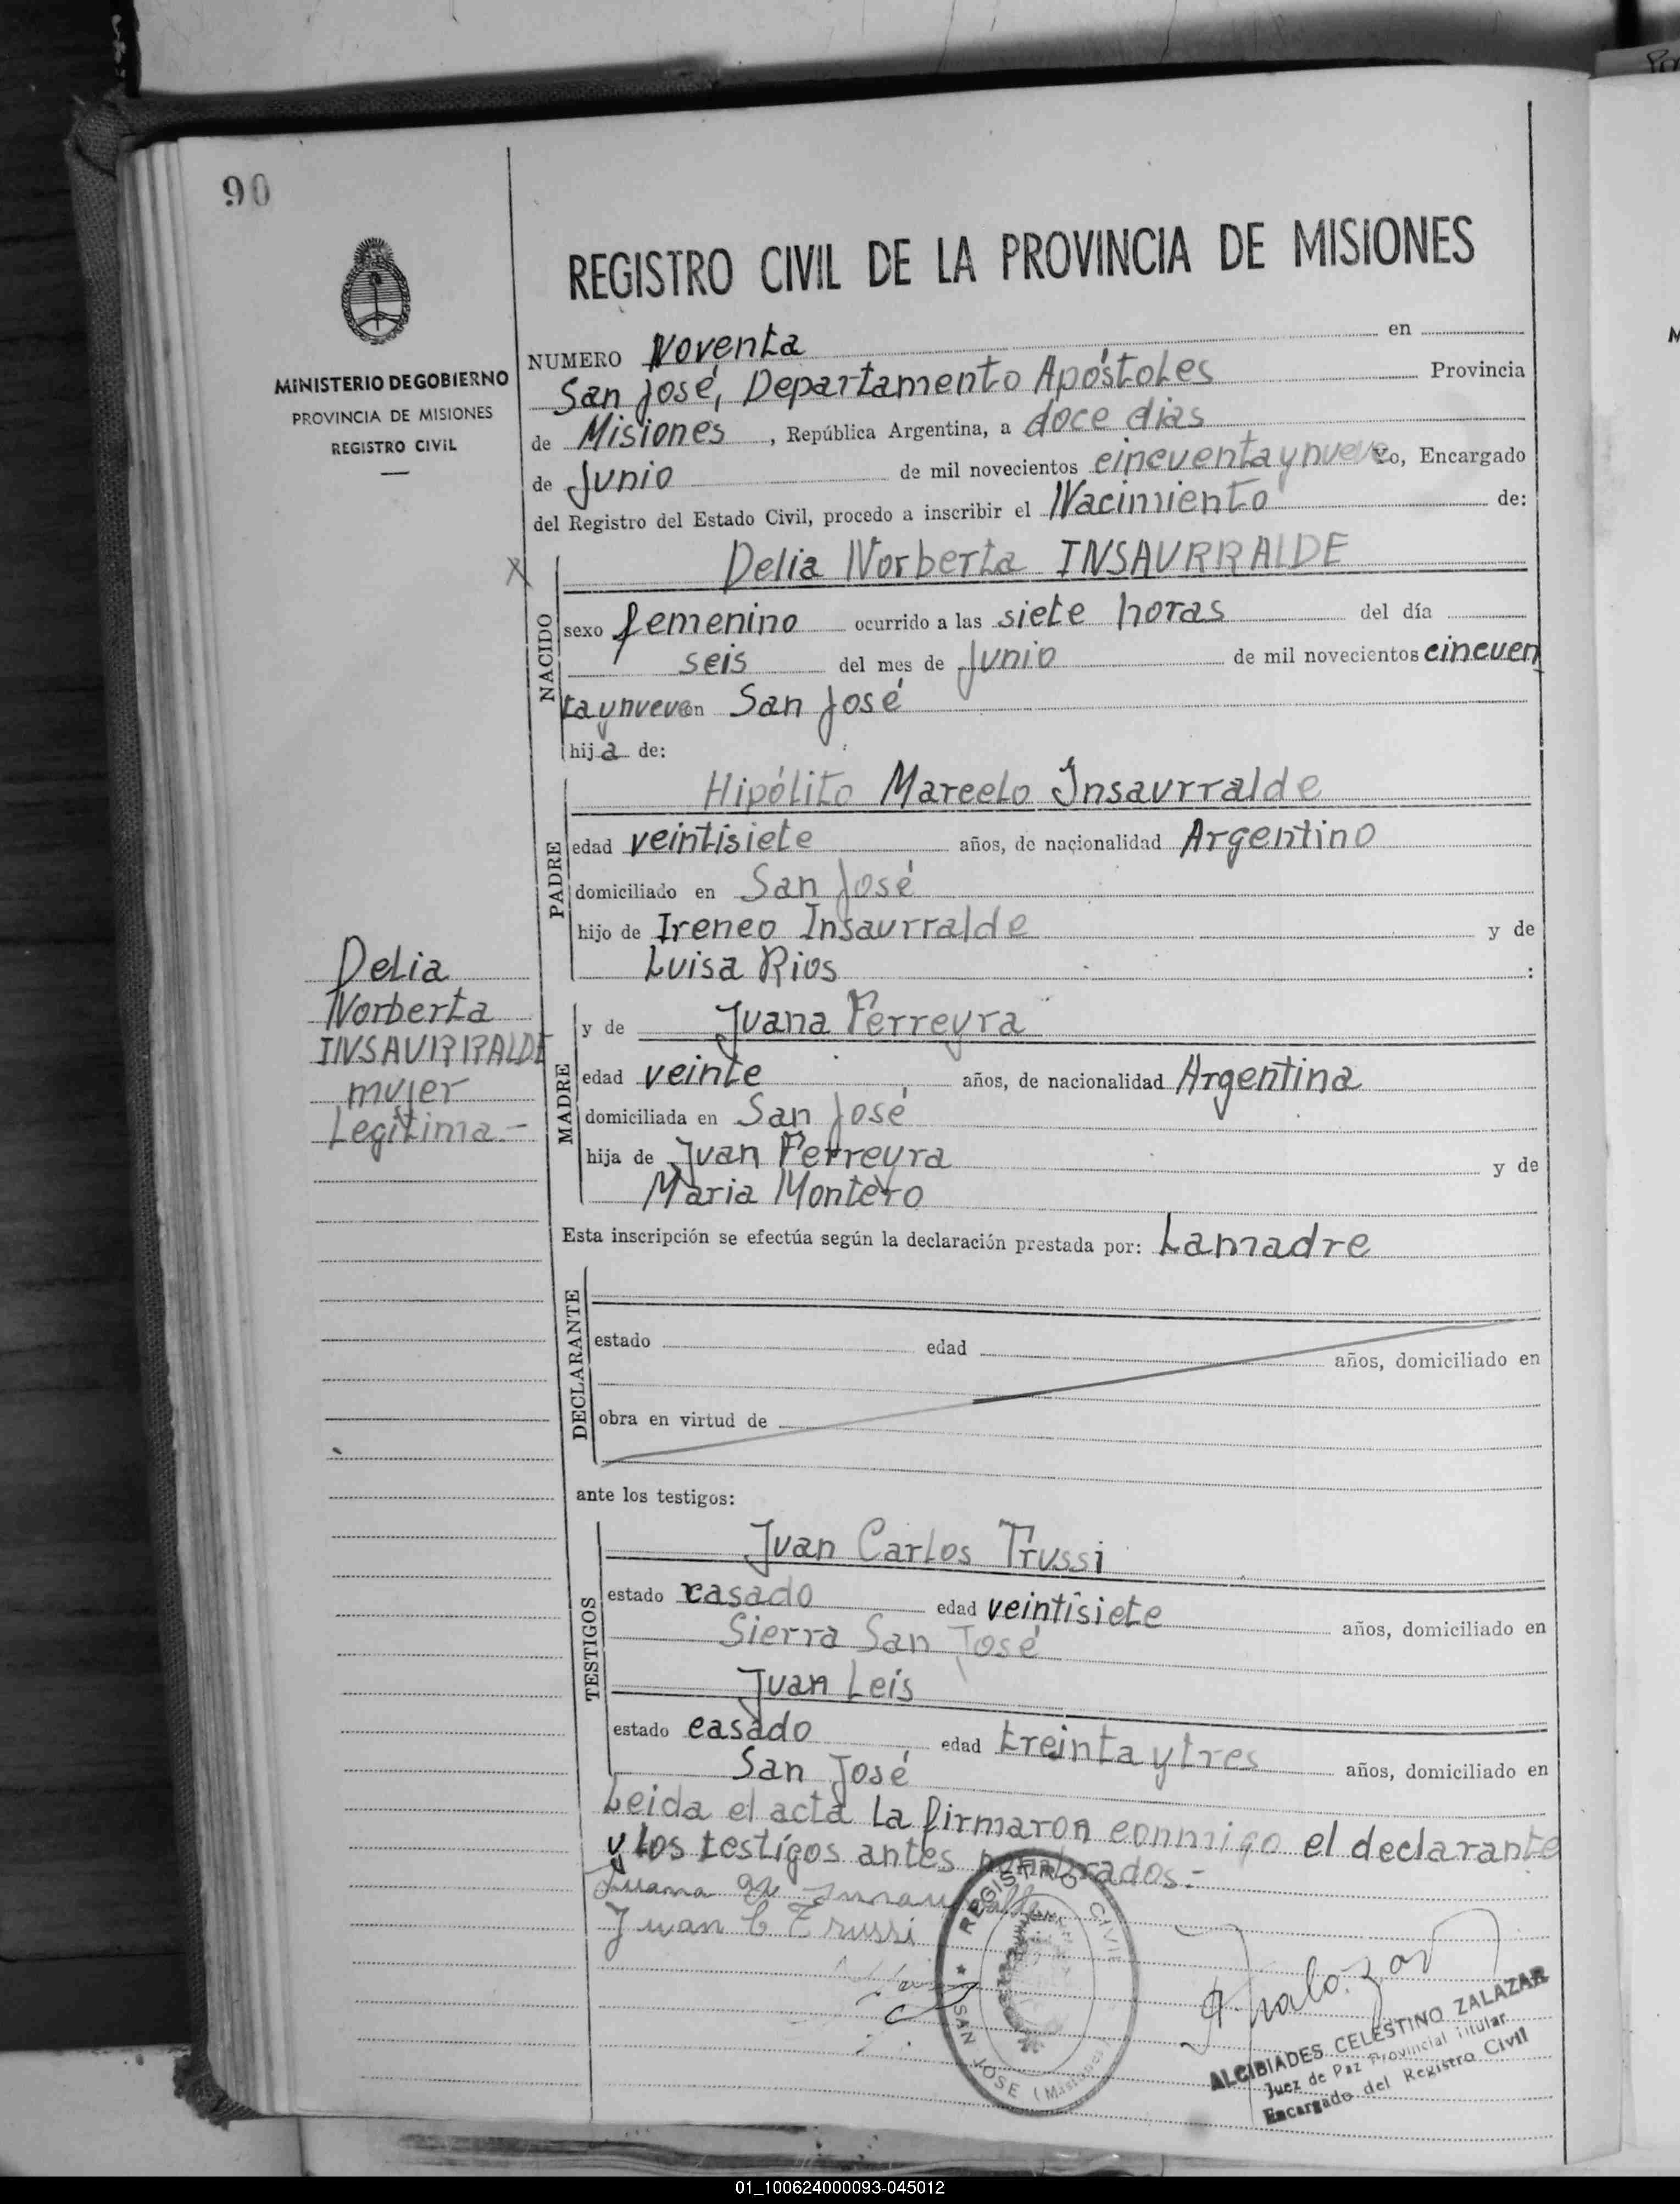 90
REGISTRO CIVIL DE LA PROVINCIA DE MISIONES
MINISTERIO DE GOBIERNO
PROVINCIA DE MISIONES
REGISTRO CIVIL
NUMERO Noventa en
San José, Departamento Apóstoles Provincia
de Misiones, República Argentina, a doce dias
de Junio de mil novecientos cincuenta y nueve Yo, Encargado
del Registro del Estado Civil, procedo a inscribir el Nacimiento de:
X
NACIDO
Delia Norberta INSAURRALDE
sexo femenino ocurrido a las siete horas del día
seis del mes de Junio de mil novecientos cincuen
ta y nueve en San José
hija de:
PADRE
Hipólito Marcelo Insaurralde
edad veintisiete años, de nacionalidad Argentino
domiciliado en San José
hijo de Ireneo Insaurralde y de
Luisa Rios :
Delia
Norberta
INSAURRALDE
mujer
Legítima.-
MADRE
y de Juana Ferreyra
edad veinte años, de nacionalidad Argentina
domiciliada en San José
hija de Juan Ferreyra y de
Maria Montero
Esta inscripción se efectúa según la declaración prestada por: La madre
DECLARANTE
estado edad años, domiciliado en
obra en virtud de
ante los testigos:
TESTIGOS
Juan Carlos Trussi
estado casado edad veintisiete años, domiciliado en
Sierra San José
Juan Leis
estado casado edad treinta y tres años, domiciliado en
San José
Leida el acta la firmaron conmigo el declarante
y los testigos antes nombrados.-
Juana
Juan C Trussi
REGISTRO CIVIL
SAN JOSE (Misiones)
ALCIBIADES CELESTINO ZALAZAR
Juez de Paz Provincial Titular
Encargado del Registro Civil
01_100624000093-045012